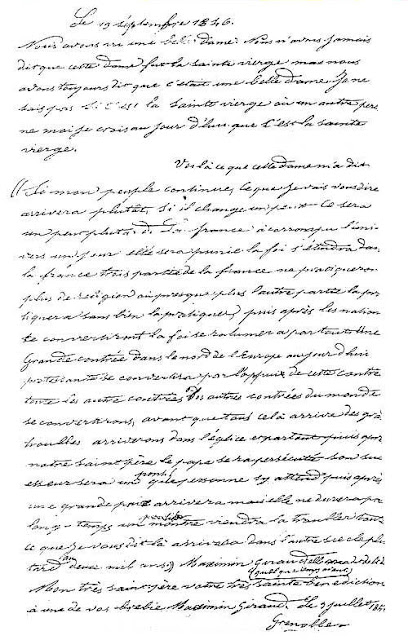 Le 19 septembre 1846.
Nous avons vu une belle dame Nous n'avons jamais
dit que cette dame fut la Sainte vierge mais nous
avons toujours dit que c'était une belle dame Je ne
sais pas si c'est la Sainte vierge ou un autre pers
ne moi je crois au jour d'hui que c'est la Sainte
vierge.
Voilà ce que cette dame m'a dit
(Si mon peuple continue, ce que je vais vous dire
arrivera plutôt, si il change un peu, ce sera
un peu plus tard. La france à corrompu l'uni-
vers un jour elle sera punie la foi s'éteindra dans
la france trois partie de la france ne pratiqueron
plus de religion ou presque plus l'autre partie la pra
tiquera sans bien la pratiquer) puis après les nation
se convertiront la foi se ralumera partout. Une
Grande contrée dans le nord de l'Europe aujourd'hui
protestante se convertira par l'appuie de cette contrée
toute les autre contrées du monde
se convertirons, avant que tous cela arrive des gra
troubles arriverons dans l'église et partout puis après
notre saint père le pape sera persécuté son suc
esseur sera un pontif que personne s'y attend puis après
une grande paix arrivera mais elle ne durera pas
long-temps un monstre viendra la troubler tout
ce que je vous dit là arrivera dans l'autre siècle plu
tard aux deux mil ans) Maximin Giraud elle m'a dit de le dire
(quelque temps avant.)
Mon très Saint père votre très Sainte bénédiction
à une de vos brebie Maximin Giraud. Le 3 juillet 185
Grenoble